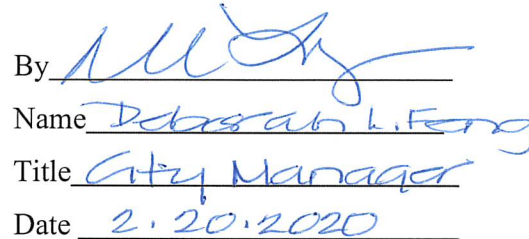 By
Name Deborah L. Feng
Title City Manager
Date 2.20.2020